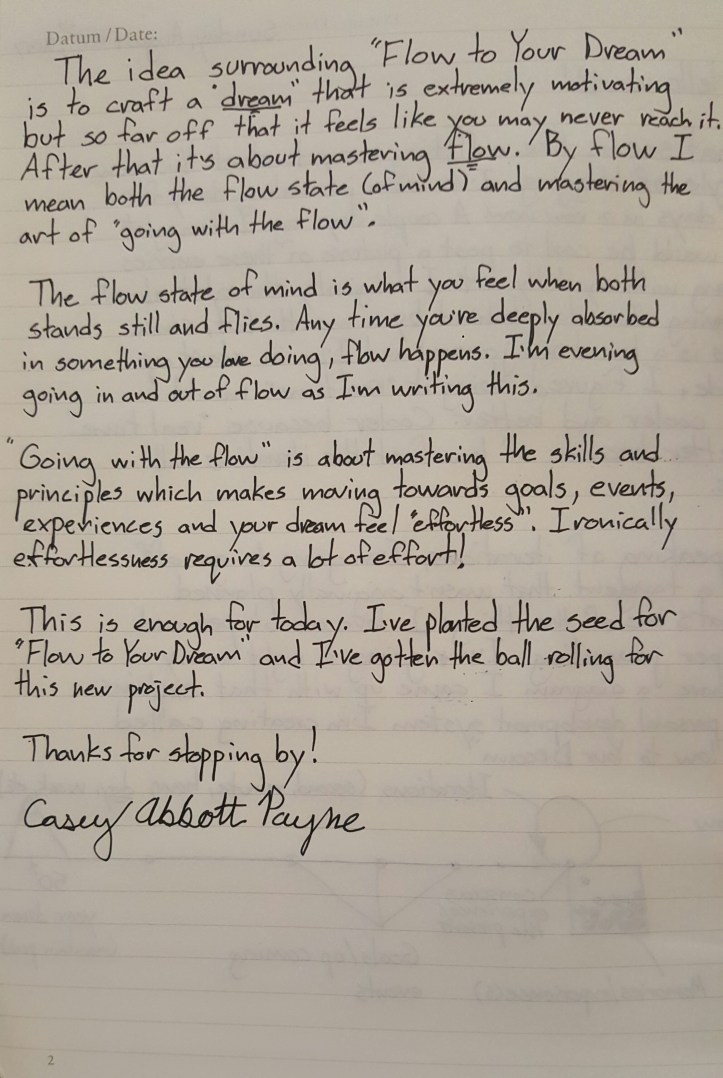 Datum / Date:
The idea surrounding "Flow to Your Dream"
is to craft a "dream" that is extremely motivating
but so far off that it feels like you may never reach it.
After that it's about mastering flow. By flow I
mean both the flow state (of mind) and mastering the
art of "going with the flow".
The flow state of mind is what you feel when both
stands still and flies. Any time you're deeply absorbed
in something you love doing, flow happens. I'm evening
going in and out of flow as I'm writing this.
"Going with the flow" is about mastering the skills and
principles which makes moving towards goals, events,
experiences and your dream feel "effortless". Ironically
effortlessness requires a lot of effort!
This is enough for today. I've planted the seed for
"Flow to Your Dream" and I've gotten the ball rolling for
this new project.
Thanks for stopping by!
Casey Abbott Payne
2